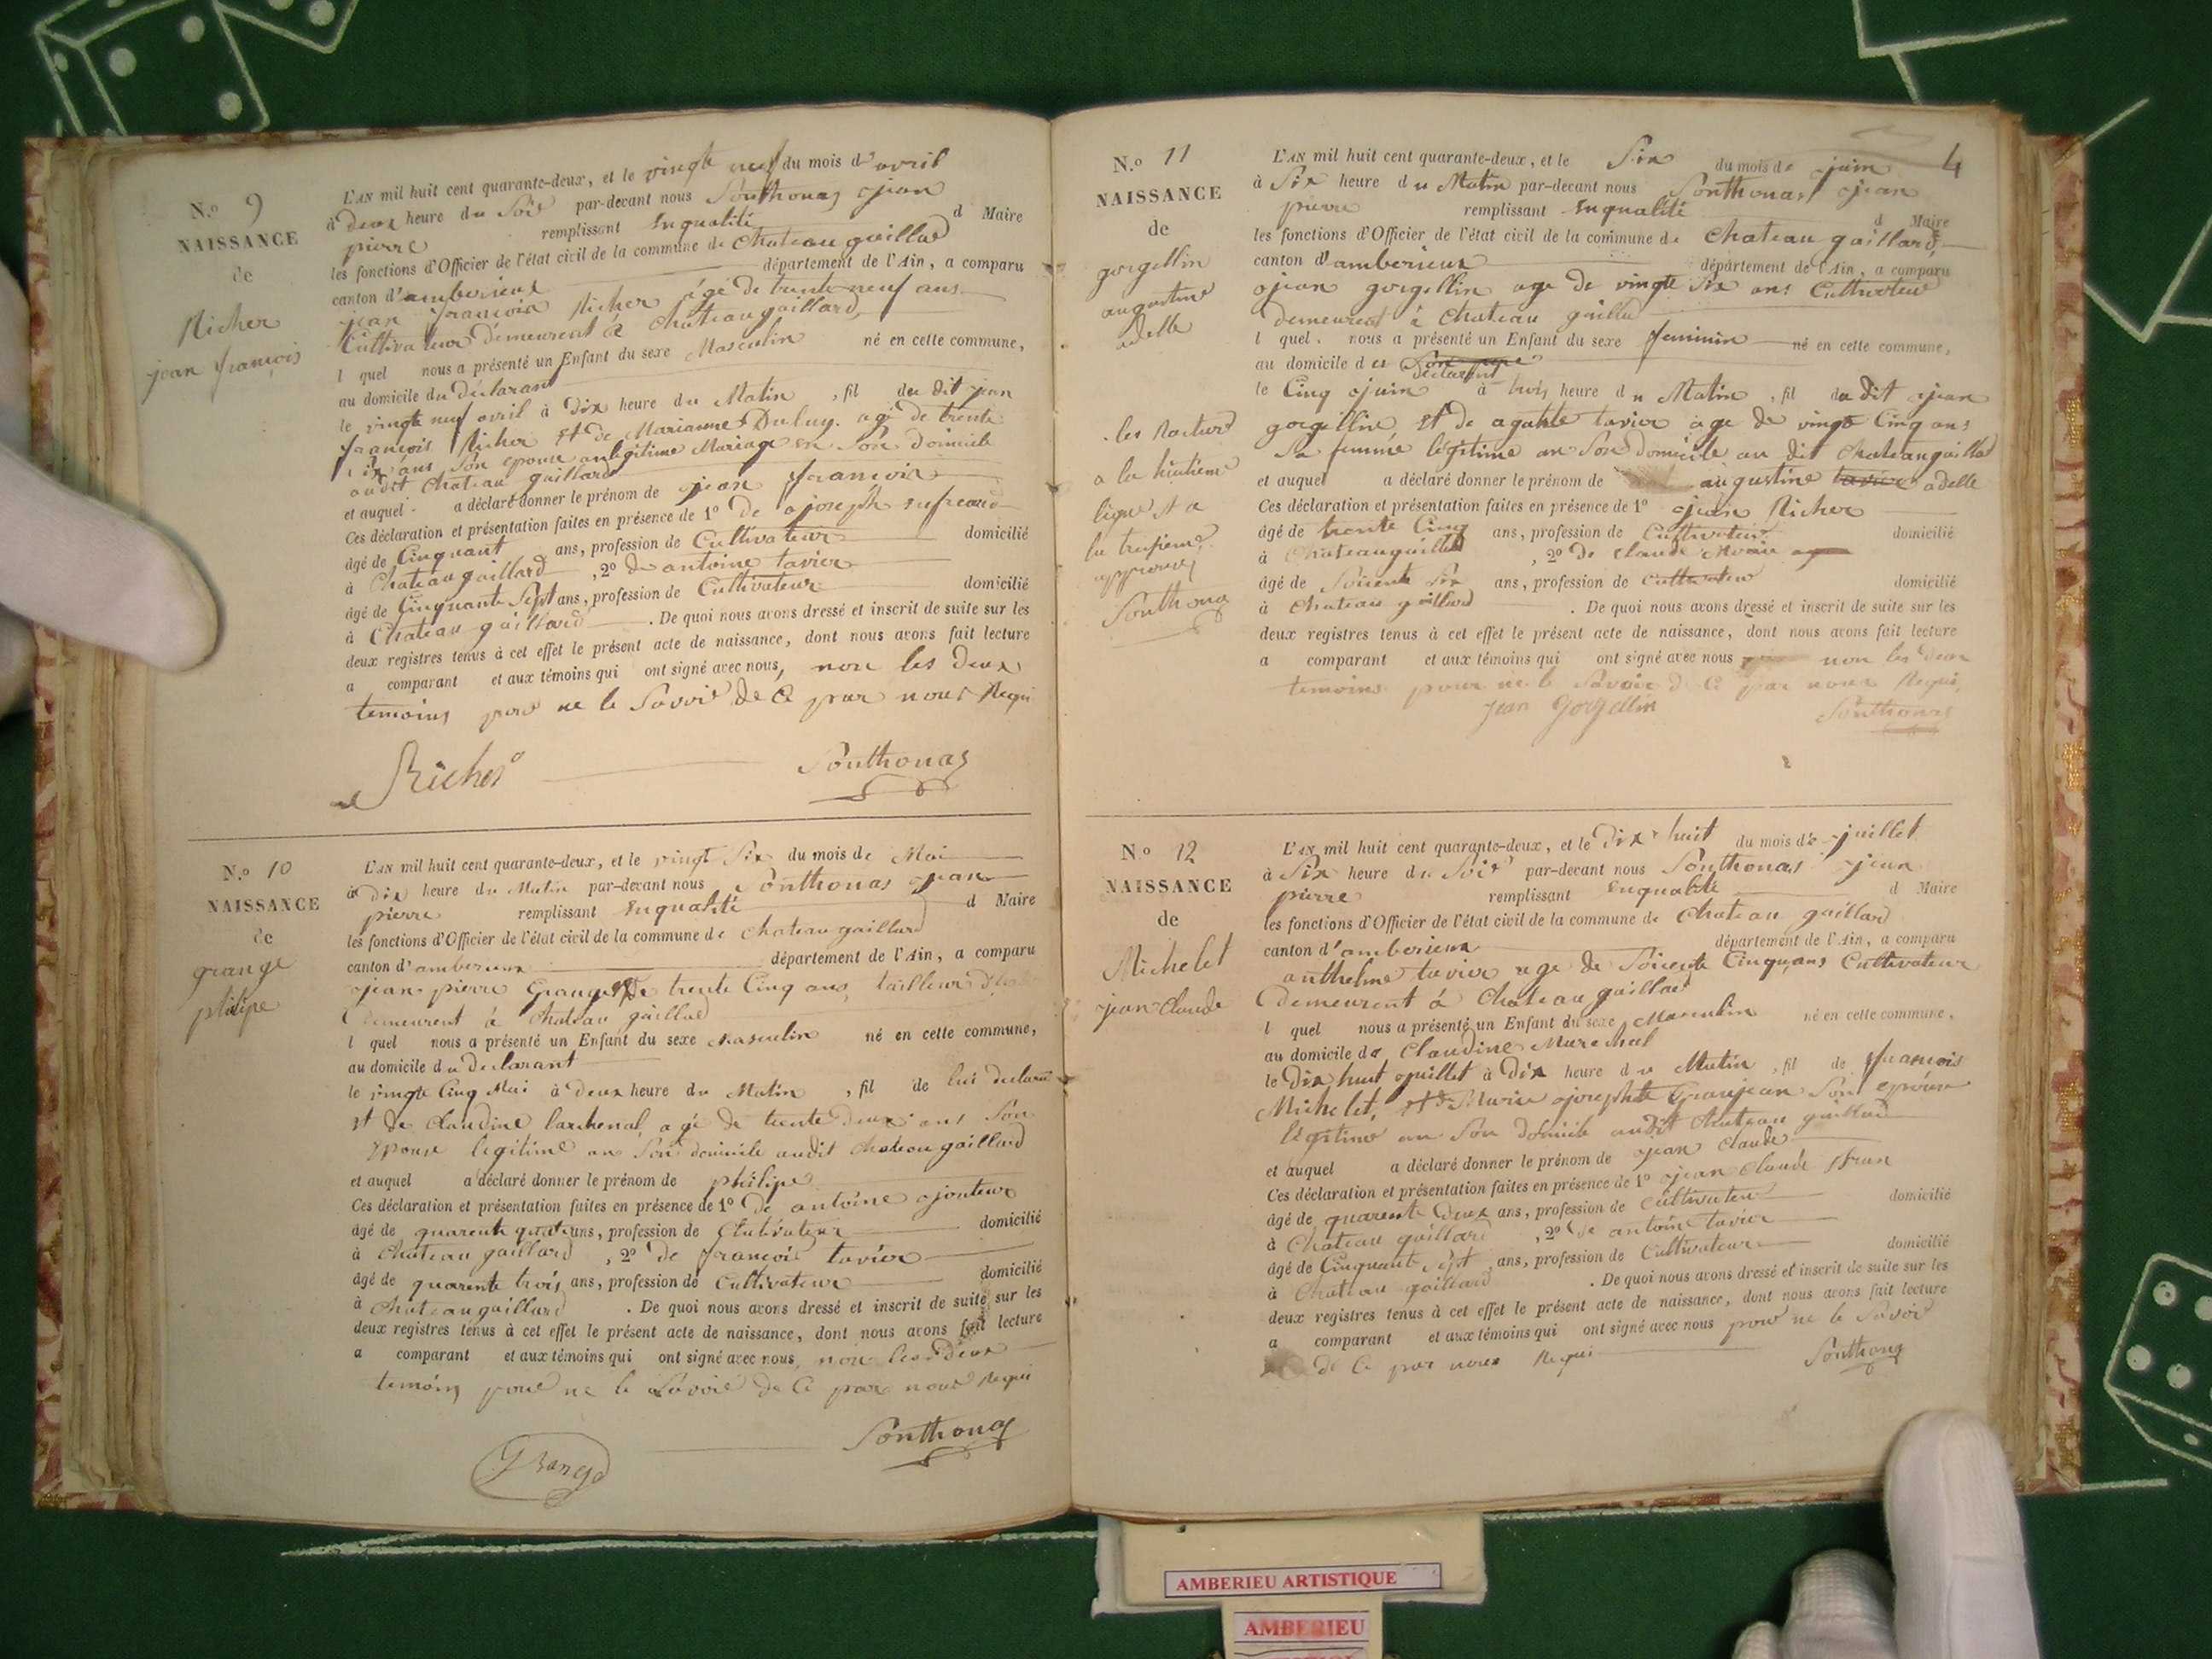 N.º 9
NAISSANCE
de
Richer
jean françois
L'AN mil huit cent quarante-deux, et le vingte neuf du mois d'avril
à deux heure du Soir par-devant nous Ponthonas jean
pierre remplissant Enqualité d Maire
les fonctions d'Officier de l'état civil de la commune de Chateau gaillard
canton d'amberieux département de l'Ain, a comparu
jean françois Richer âgé de trente neuf ans
Cultivateur demeurent à Chateaugaillard
l quel nous a présenté un Enfant du sexe Masculin né en cette commune,
au domicile du déclarant
le vingte neuf avril à Dix heure du Matin, fil du dit jean
françois Richer et de Marianne Duluy agé de trente
Six ans Son epouse anlégitime Mariage en Son Domicile
audit Chateau gaillard
et auquel a déclaré donner le prénom de jean françois
Ces déclaration et présentation faites en présence de 1º De joseph
âgé de Cinquant ans, profession de Cultivateur domicilié
à Chateau gaillard, 2º de antoine tavier
âgé de Cinquante Sept ans, profession de Cultivateur domicilié
à Chateau gaillard. De quoi nous avons dressé et inscrit de suite sur les
deux registres tenus à cet effet le présent acte de naissance, dont nous avons fait lecture
a comparant et aux témoins qui ont signé avec nous, non les deux
temoins pour ne le Savoir de Ce par nous Requi
Richer Ponthonas
N.º 10
NAISSANCE
de
grange
philipe
L'AN mil huit cent quarante-deux, et le vingt Six du mois de Mai
à Dix heure du Matin par-devant nous Ponthonas jean
pierre remplissant Enqualité d Maire
les fonctions d'Officier de l'état civil de la commune de Chateau gaillard
canton d'amberieux département de l'Ain, a comparu
jean pierre Grange de trente Cinq ans, tailleur
Demeurent à Chateau gaillard
l quel nous a présenté un Enfant du sexe Masculin né en cette commune,
au domicile du declarant
le vingte Cinq Mai à Deux heure du Matin, fil de lui declarant
et de Claudine larchenal agé de trente Deux ans Son
Epouse legitime an Son domicile audit Chateau gaillard
et auquel a déclaré donner le prénom de philipe
Ces déclaration et présentation faites en présence de 1º De antoine jouteur
âgé de quarente quatre ans, profession de Cultivateur domicilié
à Chateau gaillard, 2º De françois tavier
âgé de quarente trois ans, profession de Cultivateur domicilié
à Chateau gaillard. De quoi nous avons dressé et inscrit de suite sur les
deux registres tenus à cet effet le présent acte de naissance, dont nous avons fait lecture
a comparant et aux témoins qui ont signé avec nous, non les Deux
temoins pour ne le Savoir de Ce par nous Requi
Grange Ponthonas
4
N.º 11
NAISSANCE
de
gorgellin
augustine
adelle
les Rature
a la huitieme
ligne et a
la treisieme
approuvé
Ponthonas
L'AN mil huit cent quarante-deux, et le Six du mois de juin
à Six heure du Matin par-devant nous Ponthonas jean
pierre remplissant Enqualité d Maire
les fonctions d'Officier de l'état civil de la commune de Chateau gaillard
canton d'amberieux département de l'Ain, a comparu
jean gorgellin age de vingte Six ans Cultivateur
demeurent à Chateau gaillard
l quel nous a présenté un Enfant du sexe feminin né en cette commune,
au domicile d
declarant
le Cinq juin à trois heure du Matin, fil du dit jean
gorgelline et de agathe tavier age de vingt Cinq ans
Sa femme légitime an Son domicile au dit Chateaugaillard
et auquel a déclaré donner le prénom de augustine tavier adelle
Ces déclaration et présentation faites en présence de 1º jean Richer
âgé de trente Cinq ans, profession de Cultivateur domicilié
à Chateaugaillard, 2º de Claude
âgé de Soicente Six ans, profession de Cultivateur domicilié
à Chateau gaillard. De quoi nous avons dressé et inscrit de suite sur les
deux registres tenus à cet effet le présent acte de naissance, dont nous avons fait lecture
a comparant et aux témoins qui ont signé avec nous non les deux
temoins pour ne le Savoir de Ce par nous Requi
jean Gorgellin Ponthonas
N.º 12
NAISSANCE
de
Michelet
jean Claude
L'AN mil huit cent quarante-deux, et le Dix huit du mois de juillet
à Six heure du Soir par-devant nous Ponthonas jean
pierre remplissant Enqualité d Maire
les fonctions d'Officier de l'état civil de la commune de Chateau gaillard
canton d'amberieux département de l'Ain, a comparu
anthelme tavier age de Soicente Cinq ans Cultivateur
Demeurent à Chateau gaillard
l quel nous a présenté un Enfant du sexe Masculin né en cette commune,
au domicile de Claudine Marechal
le Dix huit juillet à Dix heure du Matin, fil de françois
Michelet, et de Marie josephte Granjean Son epouse
légitime an Son domicile audit Chateau gaillard
et auquel a déclaré donner le prénom de jean Claude
Ces déclaration et présentation faites en présence de 1º jean Claude
âgé de quarente Deux ans, profession de Cultivateur domicilié
à Chateau gaillard, 2º de antoine tavier
âgé de Cinquante Sept ans, profession de Cultivateur domicilié
à Chateau gaillard. De quoi nous avons dressé et inscrit de suite sur les
deux registres tenus à cet effet le présent acte de naissance, dont nous avons fait lecture
a comparant et aux témoins qui ont signé avec nous pour ne le Savoir
de Ce par nous Requi Ponthonas
AMBERIEU ARTISTIQUE
AMBERIEU